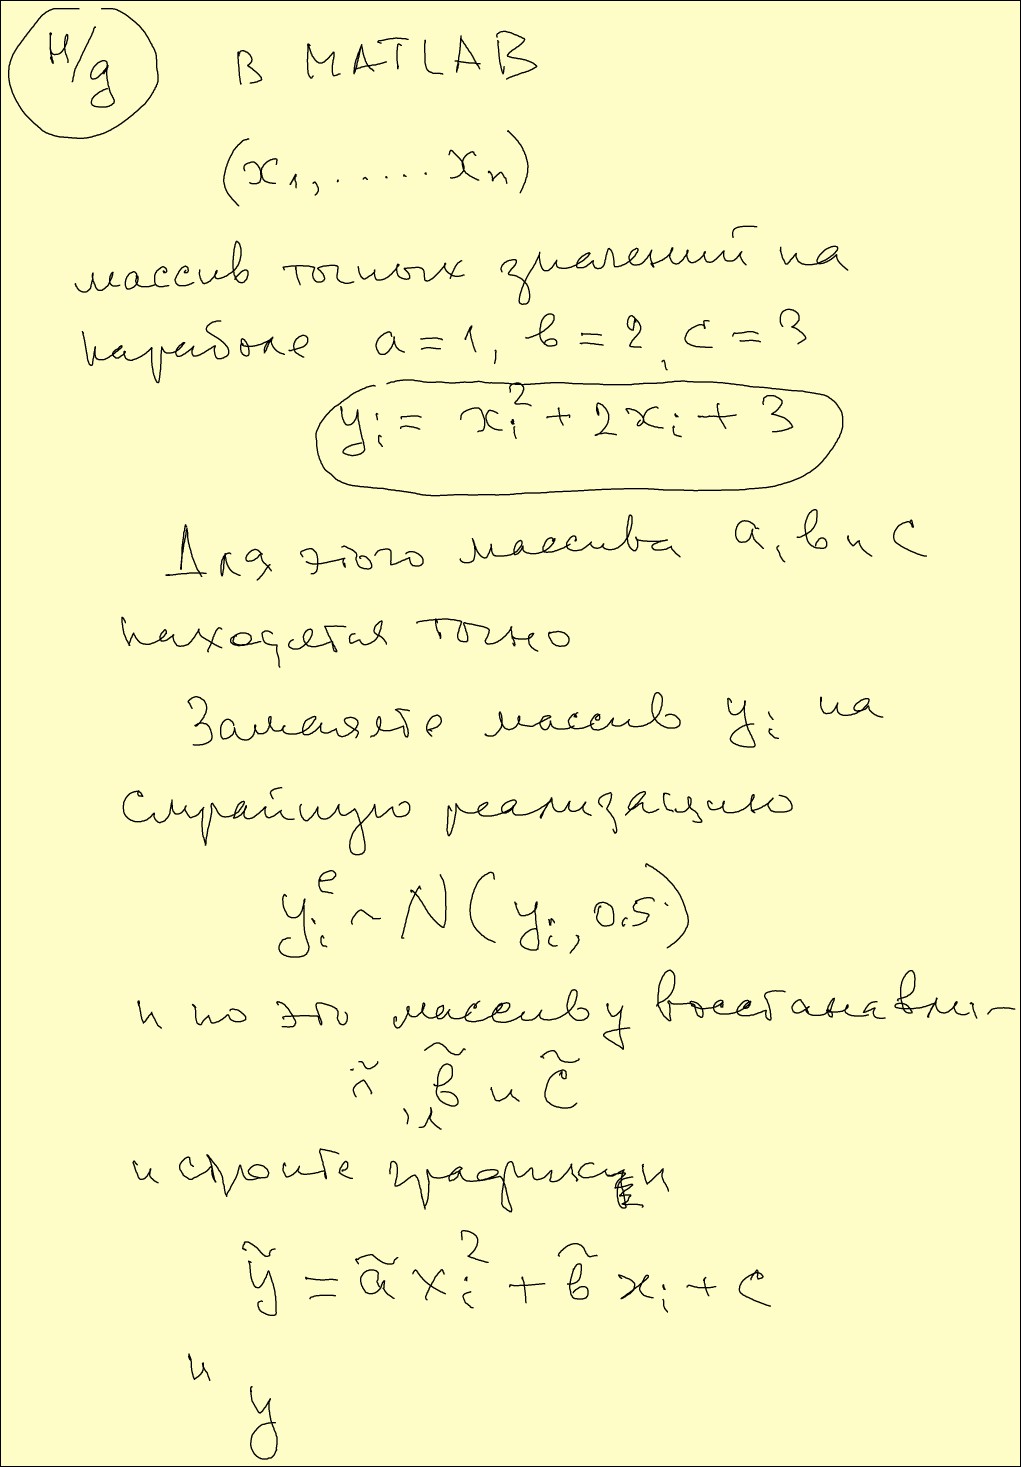 н/д в MATLAB
(x₁, ..... xₙ)
массив точных значений на
параболе a = 1, b = 2, c = 3
yᵢ = xᵢ² + 2xᵢ + 3
Для этого массива a, b и c
находятся точно
Заменяете массив yᵢ на
случайную реализацию
yᵢᵉ ~ N(yᵢ, 0.5)
и по это массиву восстанавли-
ã, b̃ и c̃
и строите графики
ỹ = ãxᵢ² + b̃xᵢ + c
и
y